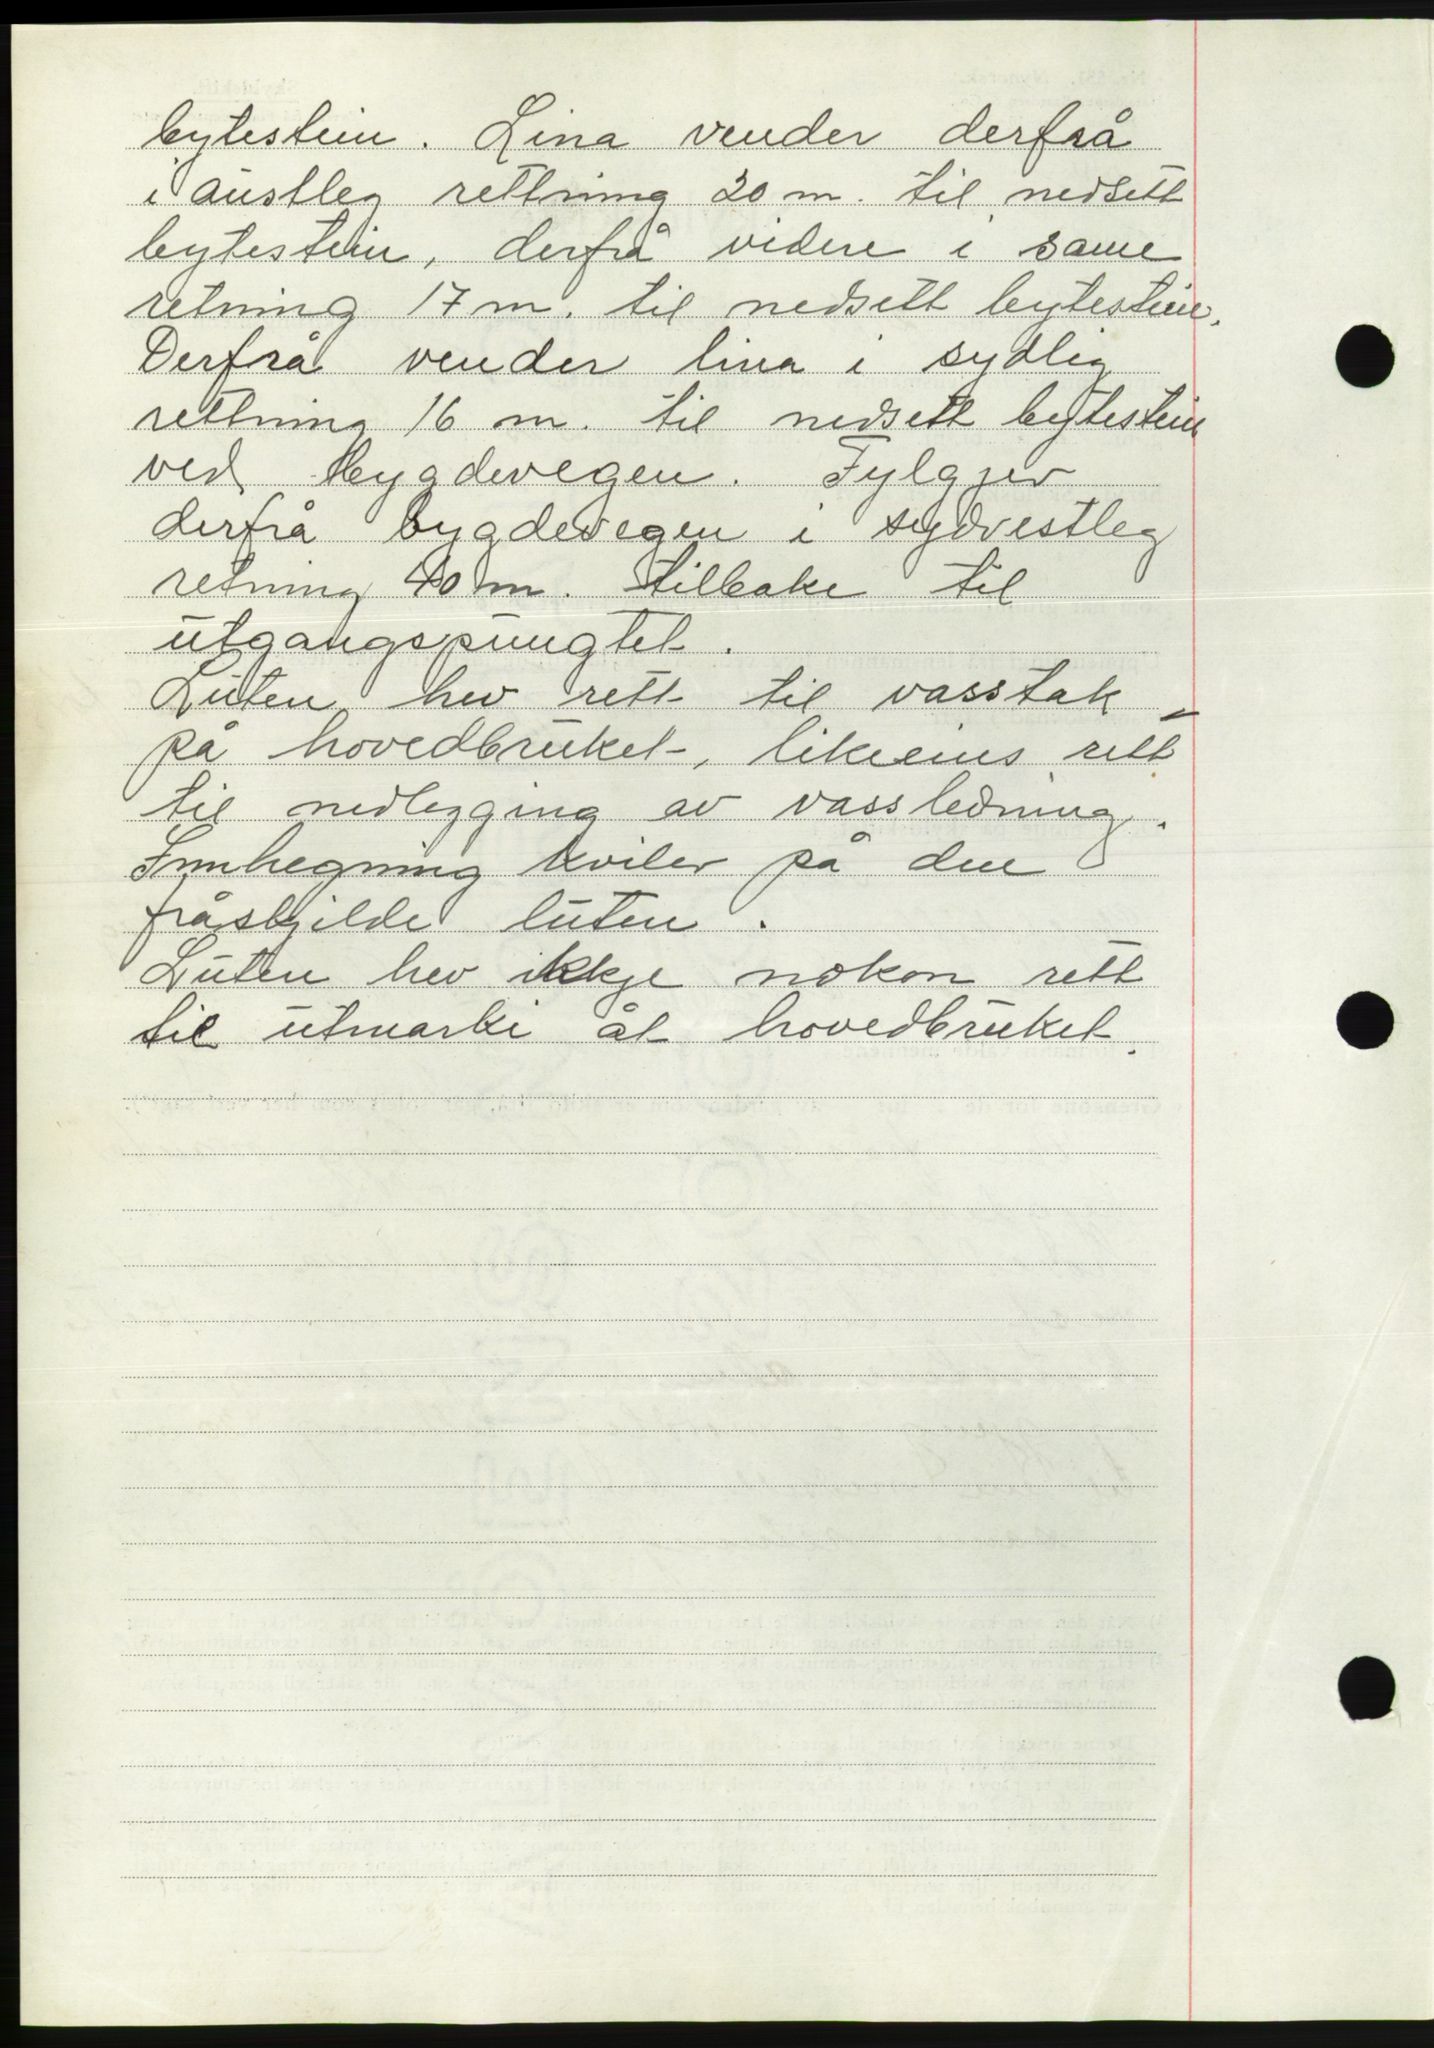 bytestein. Lina vender derfrå
i austleg rettning 20 m. til nedsett
bytestein, derfrå videre i same
retning 17 m. til nedsett bytestein.
Derfrå vender lina i sydlig
rettning 16 m. til nedsett bytestein
ved bygdevegen. Fylgjer
derfrå bygdevegen i sydvestleg
retning 40 m. tilbake til
utgangspungtet.
Luten hev rett til vasstak
på hovedbruket, likeeins rett
til nedlegging av vassledning.
Innhegning kviler på den
fråskjilde luten.
Luten hev ikkje nokon rett
til utmarki åt hovedbruket.